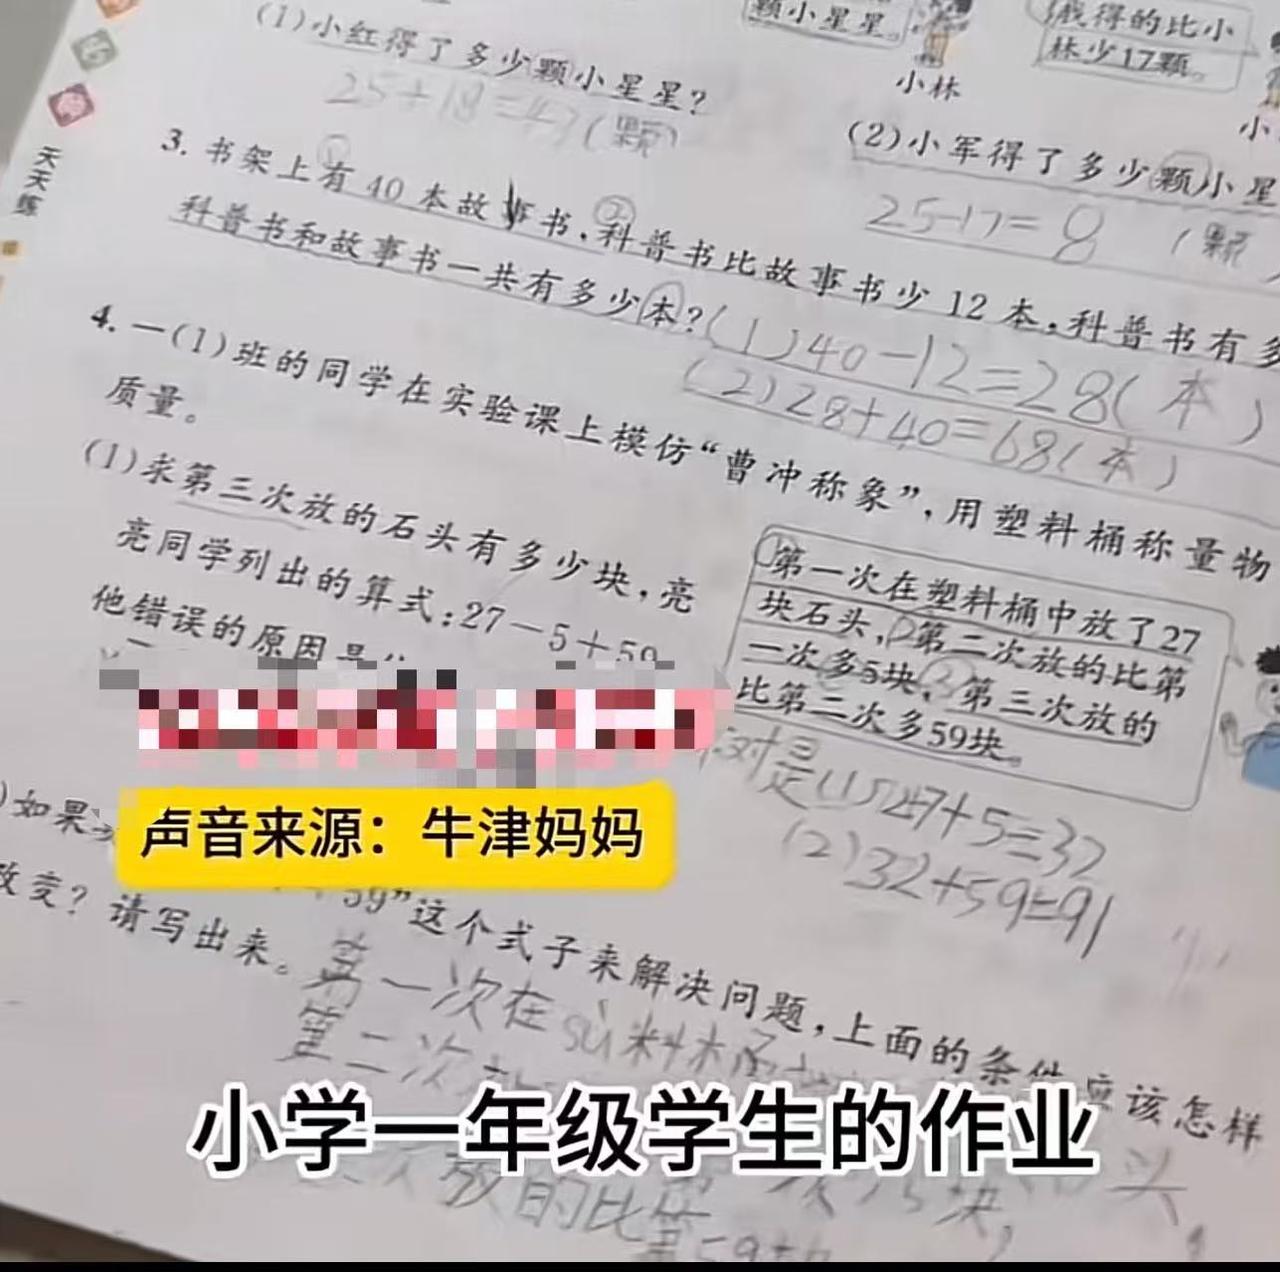 颗小星星。
我得的比小
林少17颗。
小林
小
(1)小红得了多少颗小星星?
25+18=43(颗)
(2)小军得了多少颗小星
25-17=8 (颗
天天练
3. 书架上有40本故事书,科普书比故事书少12本,科普书有多
科普书和故事书一共有多少本?
(1)40-12=28(本)
(2)28+40=68(本)
4. 一(1)班的同学在实验课上模仿“曹冲称象”,用塑料桶称量物
质量。
(1)求第三次放的石头有多少块,亮
亮同学列出的算式:27-5+59
他错误的原因是
①第一次在塑料桶中放了27
块石头,②第二次放的比第
一次多5块,③第三次放的
比第二次多59块。
对是(1)27+5=32
(2)32+59=91
声音来源:牛津妈妈
)如果
59”这个式子来解决问题,上面的条件应该怎样
改变?请写出来。
第一次在sù料桶
第二次
小学一年级学生的作业
放的比第
块,
头,